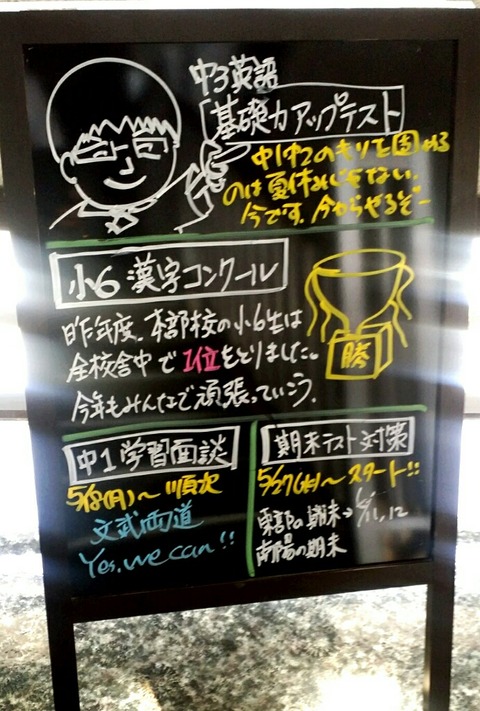 中3英語
基礎力アップテスト
中1中2のもりを固める
のは夏休みじゃない.
今です.今からやるぞー
小6 漢字コンクール
昨年度.本部校の小6生は
全校舎中で1位をとりました。
今年もみんなで頑張っていこう.
勝
中1学習面談
5/18(月)〜順次
文武両道
Yes, we can!!
期末テスト対策
5/27(水)〜スタート!!
東部の期末→6/11,12
南陽の期末